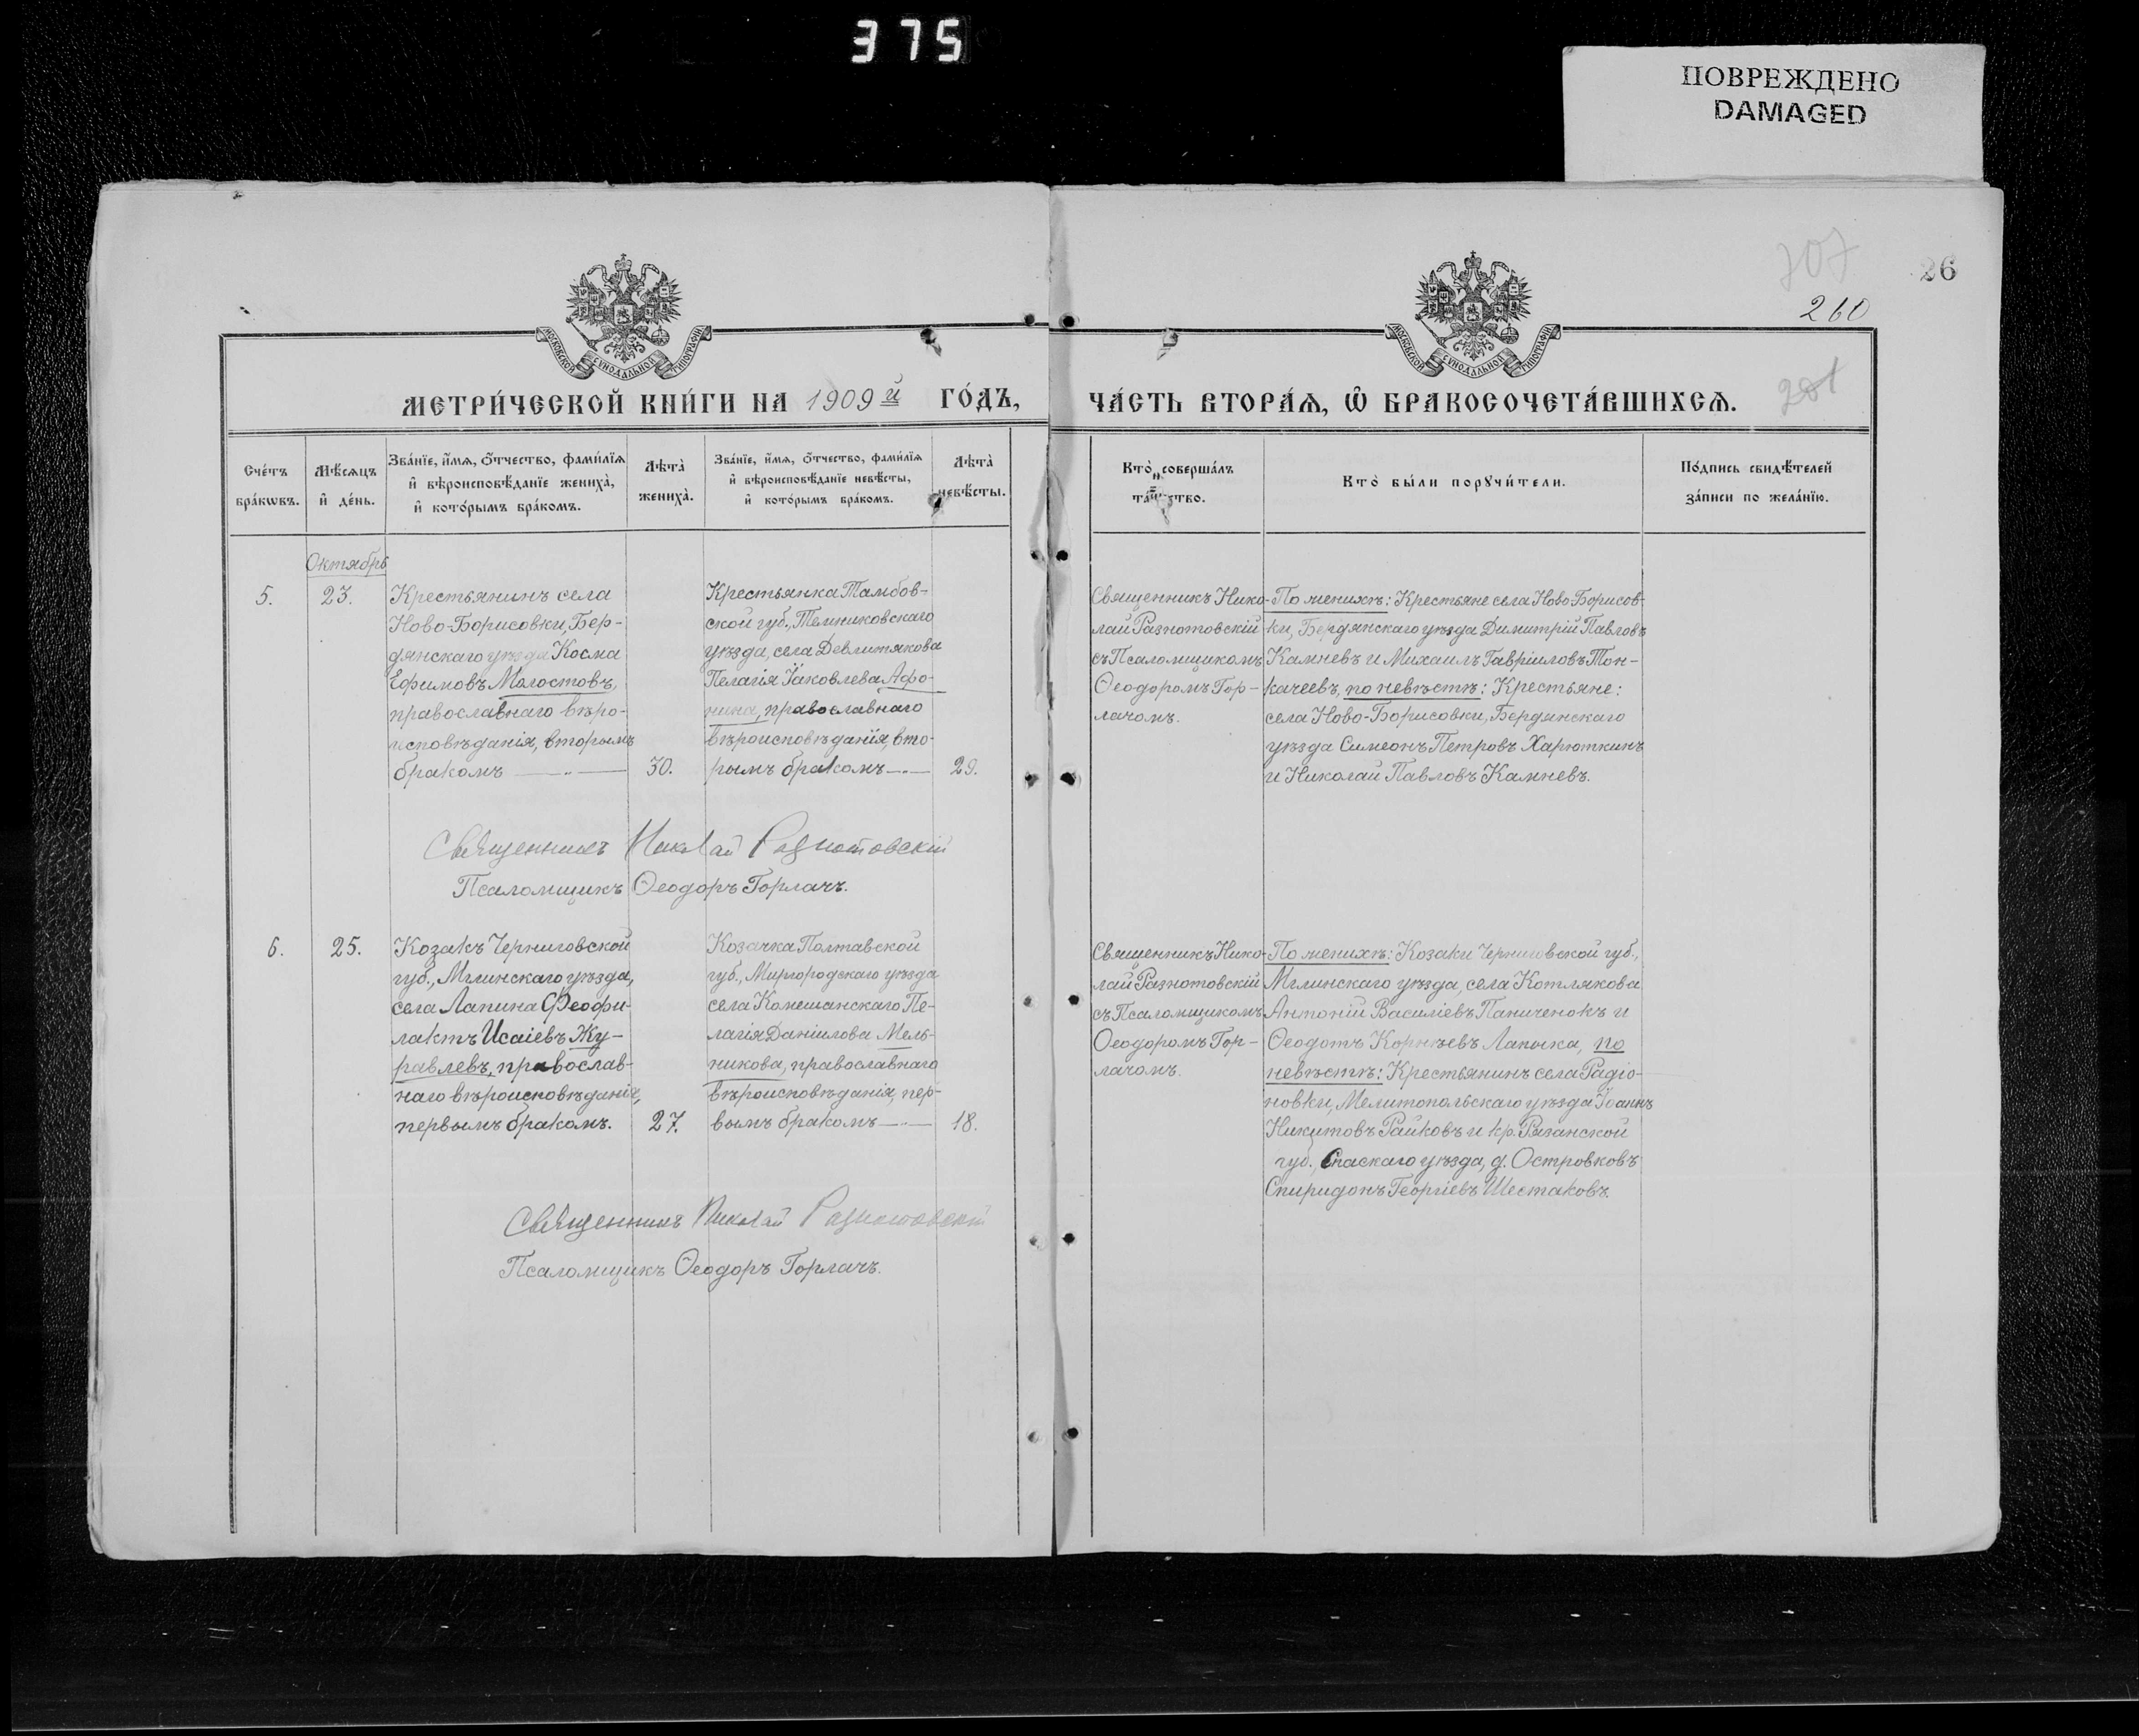 375
ПОВРЕЖДЕНО
DAMAGED
26
260
МОСКОВСКОЙ СѴНОДАЛЬНОЙ ТИПОГРАФІИ
МОСКОВСКОЙ СѴНОДАЛЬНОЙ ТИПОГРАФІИ
МЕТРИ́ЧЕСКОЙ КНИ́ГИ НА 1909й ГО́ДЪ,
ЧА́СТЬ ВТОРА́Ѧ, Ѡ҆ БРАКОСОЧЕТА́ВШИХСѦ.
Сче́тъ
бра́кѡвъ.
Мѣ́сѧцъ
и҆ де́нь.
Зва́нїе, и҆́мѧ, ѻ҆́тчество, фами́лїѧ
и҆ вѣроисповѣ́данїе жениха̀,
и҆ кото́рымъ бра́комъ.
Лѣта̀
жениха̀.
Зва́нїе, и҆́мѧ, ѻ҆́тчество, фами́лїѧ
и҆ вѣроисповѣ́данїе невѣ́сты,
и҆ кото́рымъ бра́комъ.
Лѣта̀
невѣ́сты.
Кто̀ соверша́лъ
Кто̀ бы́ли порꙋчи́тели.
По́дпись свидѣ́телей
за́писи по жела́нїю.
Октябрь
5.
23.
Крестьянинъ села
Ново-Борисовки, Бер-
дянскаго уѣзда Косма
Ефимовъ Малостовъ,
православнаго вѣро-
исповѣданія, вторымъ
бракомъ
30.
Крестьянка Тамбов-
ской губ., Темниковскаго
уѣзда, села Девлитякова
Пелагія Іаковлева Афо-
нина, православнаго
вѣроисповѣданія, вто-
рымъ бракомъ
29.
Священникъ Нико-
лай Разнотовскій
съ Псаломщикомъ
Ѳеодоромъ Гор-
лачомъ.
По женихѣ: Крестьяне села Ново-Борисов-
ки, Бердянскаго уѣзда Димитрій Павловъ
Камневъ и Михаилъ Гавріиловъ Тон-
качеевъ, по невѣстѣ: Крестьяне:
села Ново-Борисовки, Бердянскаго
уѣзда Симеонъ Петровъ Харюткинъ
и Николай Павловъ Камневъ.
Священникъ Николай Разнотовскій
Псаломщикъ Ѳеодоръ Горлачъ.
6.
25.
Козакъ Черниговской
губ., Мглинскаго уѣзда,
села Лапина Ѳеофи-
лактъ Исаіевъ Жу-
равлевъ, православ-
наго вѣроисповѣданія,
первымъ бракомъ.
27.
Козачка Полтавской
губ., Миргородскаго уѣзда
села Комешанскаго Пе-
лагія Даніилова Мель-
никова, православнаго
вѣроисповѣданія, пер-
вымъ бракомъ
18.
Священникъ Нико-
лай Разнотовскій
съ Псаломщикомъ
Ѳеодоромъ Гор-
лачомъ.
По женихѣ: Козаки Черниговской губ.,
Мглинскаго уѣзда, села Котлякова
Антоній Василіевъ Паниченокъ и
Ѳеодотъ Корнѣевъ Лапыка, по
невѣстѣ: Крестьянинъ села Радіо-
новки, Мелитопольскаго уѣзда Іоаннъ
Никитовъ Райковъ и кр. Рязанской
губ., Спаскаго уѣзда, д. Островковъ
Спиридонъ Георгіевъ Шестаковъ.
Священникъ Николай Разнотовскій
Псаломщикъ Ѳеодоръ Горлачъ.